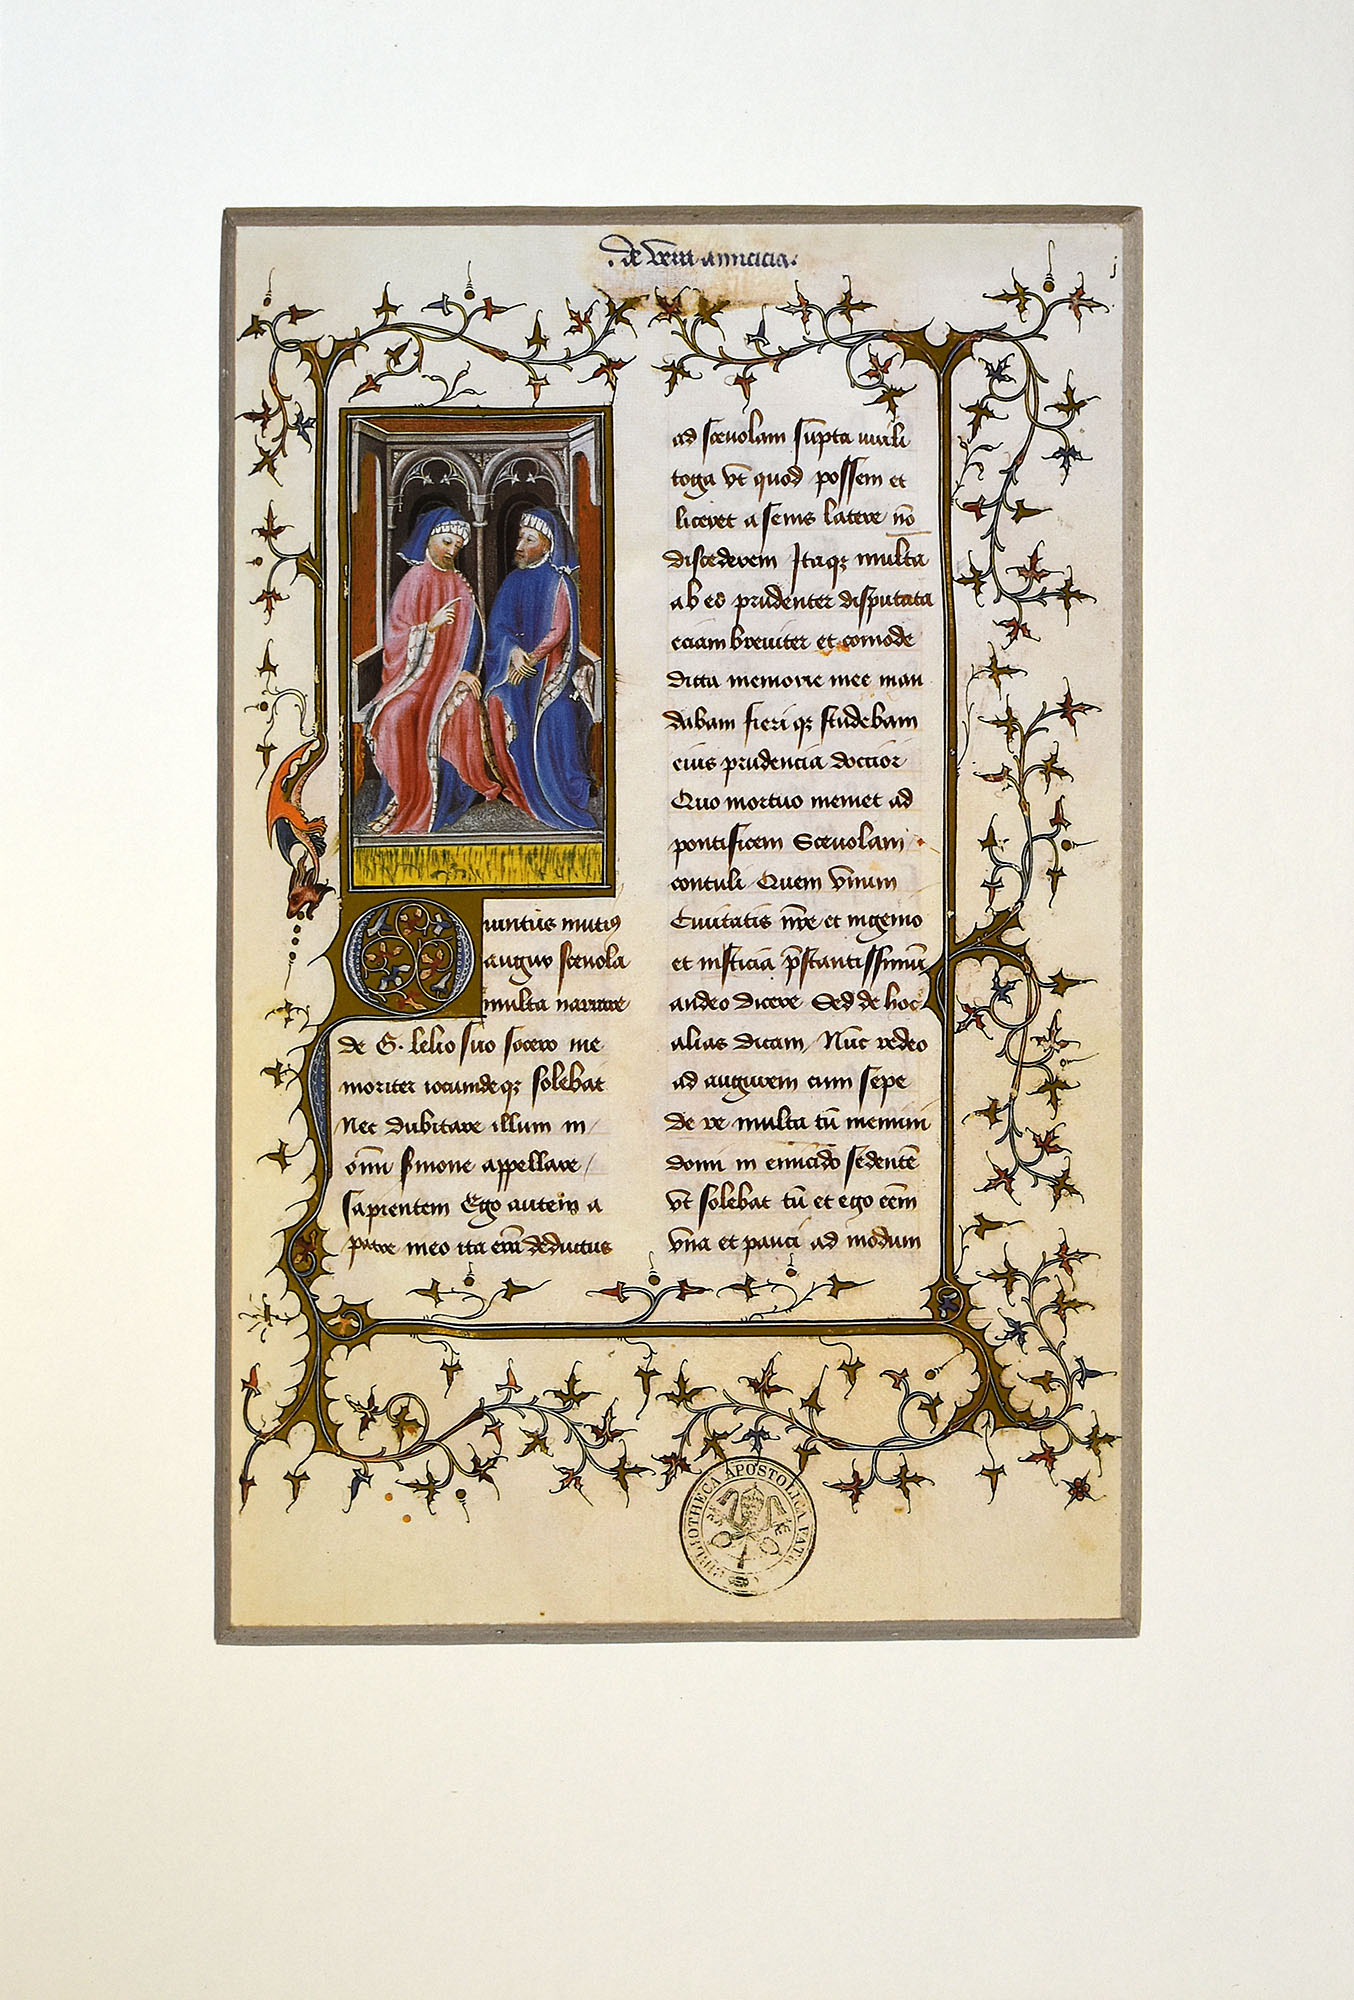 .de vera amicicia.
j
Quintus mutius
augur scevola
multa narrare
de G. lelio suo socero me
moriter iocundeqz solebat
Nec dubitare illum in /
omni sermone appellare /
sapientem Ego autem a
patre meo ita erā deductus
ad scevolam sūpta virili
toga vt quod possem et
liceret a senis latere nō
discederem Itaqz multa
ab eo prudenter disputata
eciam breviter et comode
dicta memorie mee man
dabam fieri qz studebam
eius prudencia doctior
Quo mortuo memet ad
pontificem Scevolam
contuli Quem vnum
Civitatis nrē et ingenio
et iusticia p̄stantissimum
audeo dicere Sed de hoc
alias dicam / Nūc redeo
ad augurem cum sepe
de re multa tū memini
domi in emicido sedentē
vt solebat tū et ego eēm
vna et pauci ad modum
BIBLIOTHECA APOSTOLICA VATIC